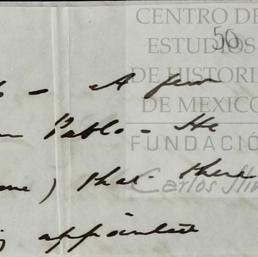 CENTRO DE
ESTUDIOS
50
DE HISTORI
DE MEXICO
FUNDACIÓ
Carlos Slim
- A few
Pablo - He
) that there
appointed